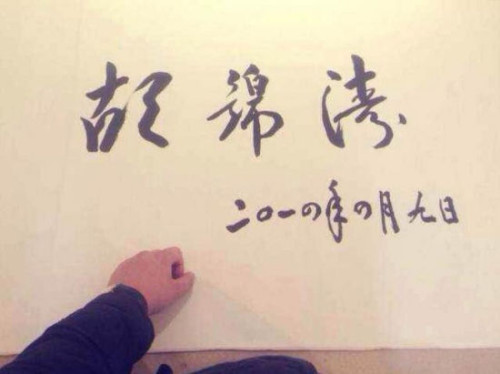 胡锦涛
二〇一四年四月九日